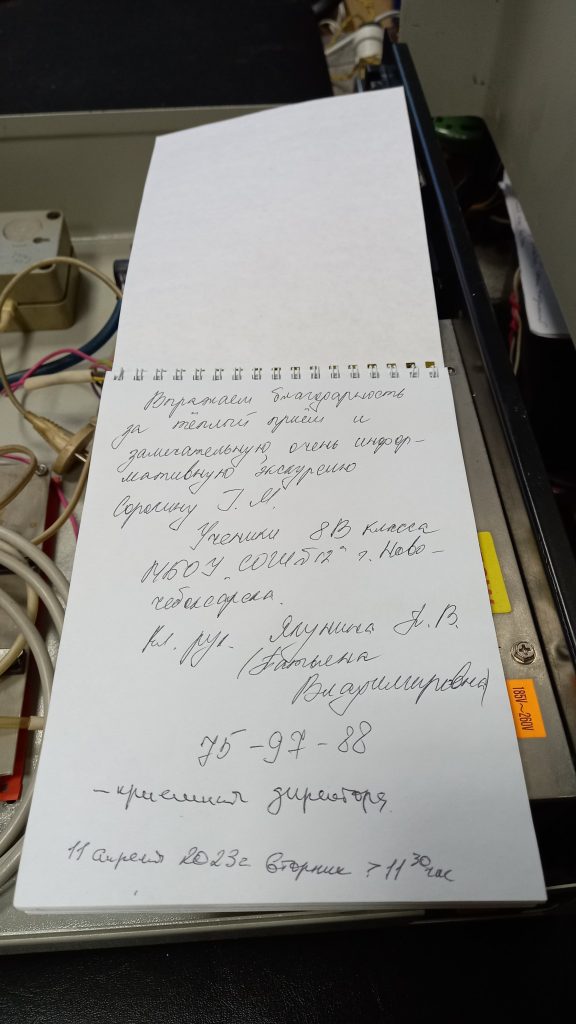 Выражаем благодарность
за тёплый приём и
замечательную, очень инфор-
мативную экскурсию
Сорокину Г. М.
Ученики 8В класса
МБОУ "СОШ №12" г. Ново-
чебоксарска.
Кл. рук. Якунина Т. В.
(Татьяна
Владимировна)
75-97-88
- приемная директора.
11 апреля 2023г вторник 11 30 час
185V~260V